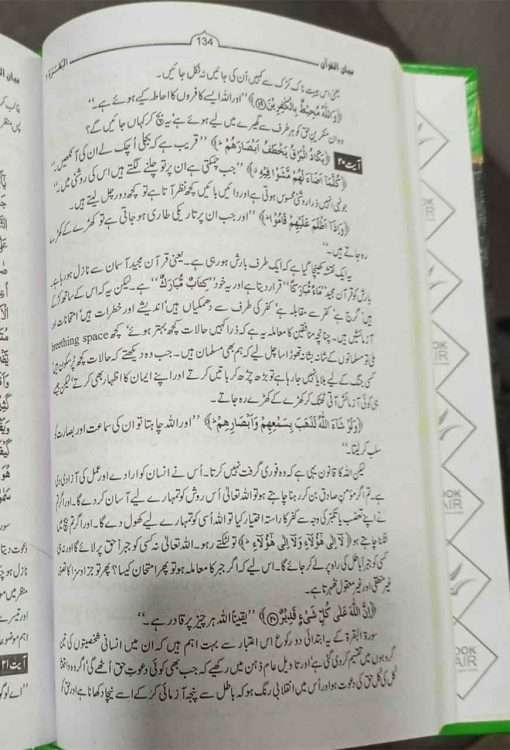 البقرۃ ۲
134
بیان القرآن
یعنی اس ہیبت ناک کڑک سے کہیں اُن کی جانیں نہ نکل جائیں۔
﴿وَاللّٰهُ مُحِيْطٌۢ بِالْكٰفِرِيْنَ ⑲﴾ ”اور اللہ ایسے کافروں کا احاطہ کیے ہوئے ہے۔“
وہ ان منکرینِ حق کو ہر طرف سے گھیرے میں لیے ہوئے ہے‘ یہ بچ کر کہاں جائیں گے؟
آیت ۲۰ ﴿يَكَادُ الْبَرْقُ يَخْطَفُ اَبْصَارَهُمْ ؕ﴾ ”قریب ہے کہ بجلی اُچک لے ان کی آنکھیں۔“
﴿كُلَّمَآ اَضَآءَ لَهُمْ مَّشَوْا فِيْهِ ۙ﴾ ”جب چمکتی ہے ان پر تو چلنے لگتے ہیں اس کی روشنی میں۔“
جونہی انہیں ذرا روشنی محسوس ہوتی ہے اور دائیں بائیں کچھ نظر آتا ہے تو کچھ دور چل لیتے ہیں۔
﴿وَاِذَآ اَظْلَمَ عَلَيْهِمْ قَامُوْا ؕ﴾ ”اور جب ان پر تاریکی طاری ہو جاتی ہے تو کھڑے کے کھڑے
رہ جاتے ہیں۔“
یہ ایک نقشہ کھینچا گیا ہے کہ ایک طرف بارش ہو رہی ہے۔ یعنی قرآن مجید آسمان سے نازل ہو رہا ہے۔
بارش کو قرآن مجید ”مَآءً مُّبٰرَكًا“ قرار دیتا ہے اور یہ خود ”كِتٰبٌ مُّبٰرَكٌ“ ہے۔ لیکن یہ کہ اس کے ساتھ کڑکے
ہیں‘ گرج ہے‘ کفر سے مقابلہ ہے‘ کفر کی طرف سے دھمکیاں ہیں‘ اندیشے اور خطرات ہیں‘ امتحانات اور
آزمائشیں ہیں۔ چنانچہ منافقین کا معاملہ یہ ہے کہ ذرا کہیں حالات کچھ بہتر ہوئے‘ کچھ breething space
ملی تو مسلمانوں کے شانہ بشانہ تھوڑا سا چل لیے کہ ہم بھی مسلمان ہیں۔ جب وہ دیکھتے کہ حالات کچھ پُرسکون ہیں‘
کسی جنگ کے لیے بلایا نہیں جا رہا ہے تو بڑھ چڑھ کر باتیں کرتے اور اپنے ایمان کا اظہار بھی کرتے‘ لیکن جیسے
ہی کوئی آزمائش آتی ٹھٹک کر کھڑے کے کھڑے رہ جاتے۔
﴿وَلَوْ شَآءَ اللّٰهُ لَذَهَبَ بِسَمْعِهِمْ وَاَبْصَارِهِمْ ؕ﴾ ”اور اللہ چاہتا تو ان کی سماعت اور بصارت کو
سلب کر لیتا۔“
لیکن اللہ کا قانون یہی ہے کہ وہ فوری گرفت نہیں کرتا۔ اُس نے انسان کو ارادے اور عمل کی آزادی دی
ہے۔ تم اگر مؤمنِ صادق بن کر رہنا چاہتے ہو تو اللہ تعالیٰ اُس روش کو تمہارے لیے آسان کر دے گا۔ اور اگر تم
نے اپنے تعصب یا تکبر کی وجہ سے کفر کا راستہ اختیار کیا تو اللہ اُسی کو تمہارے لیے کھول دے گا۔ اور اگر تم بیچ میں
لٹکنا چاہتے ہو ﴿لَآ اِلٰى هٰٓؤُلَآءِ وَلَآ اِلٰى هٰٓؤُلَآءِ ؕ﴾ تو لٹکتے رہو۔ اللہ تعالیٰ نہ کسی کو جبراً حق پر لائے گا اور نہ ہی
کسی کو جبراً باطل کی راہ پر لے کر جائے گا۔ اس لیے کہ اگر جبر کا معاملہ ہو تو پھر امتحان کیسا؟ پھر تو جزا و سزا کا تصور
غیر منطقی اور غیر معقول ٹھہرتا ہے۔
﴿اِنَّ اللّٰهَ عَلٰى كُلِّ شَيْءٍ قَدِيْرٌ ⑳﴾ ”یقیناً اللہ ہر چیز پر قادر ہے۔“
سورۃ البقرۃ کے یہ ابتدائی دو رکوع اس اعتبار سے بہت اہم ہیں کہ ان میں انسانی شخصیتوں کی تین
گروہوں میں تقسیم کر دی گئی ہے اور تاویلِ عام ذہن میں رکھیے کہ جب بھی کوئی دعوتِ حق اُٹھے گی‘ اگر وہ واقعتاً
کُل کی کُل حق کی دعوت ہو اور اُس میں انقلابی رنگ ہو کہ باطل سے پنجہ آزمائی کر کے اسے نیچا دکھانا ہے اور حق کو
آیت ۲۱
”اے لوگو
BOOK
FAIR